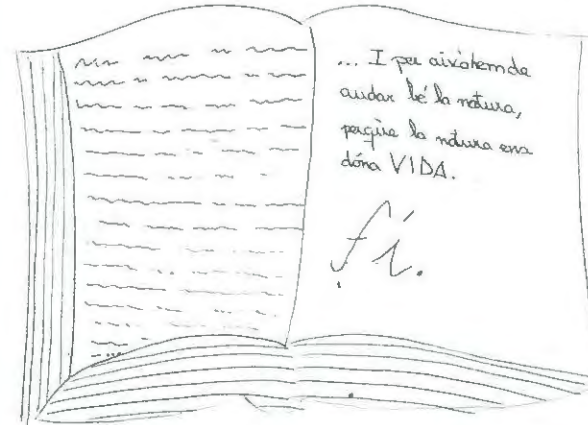 ... I per això hem de
cuidar bé la natura,
perquè la natura ens
dóna VIDA.
fi.